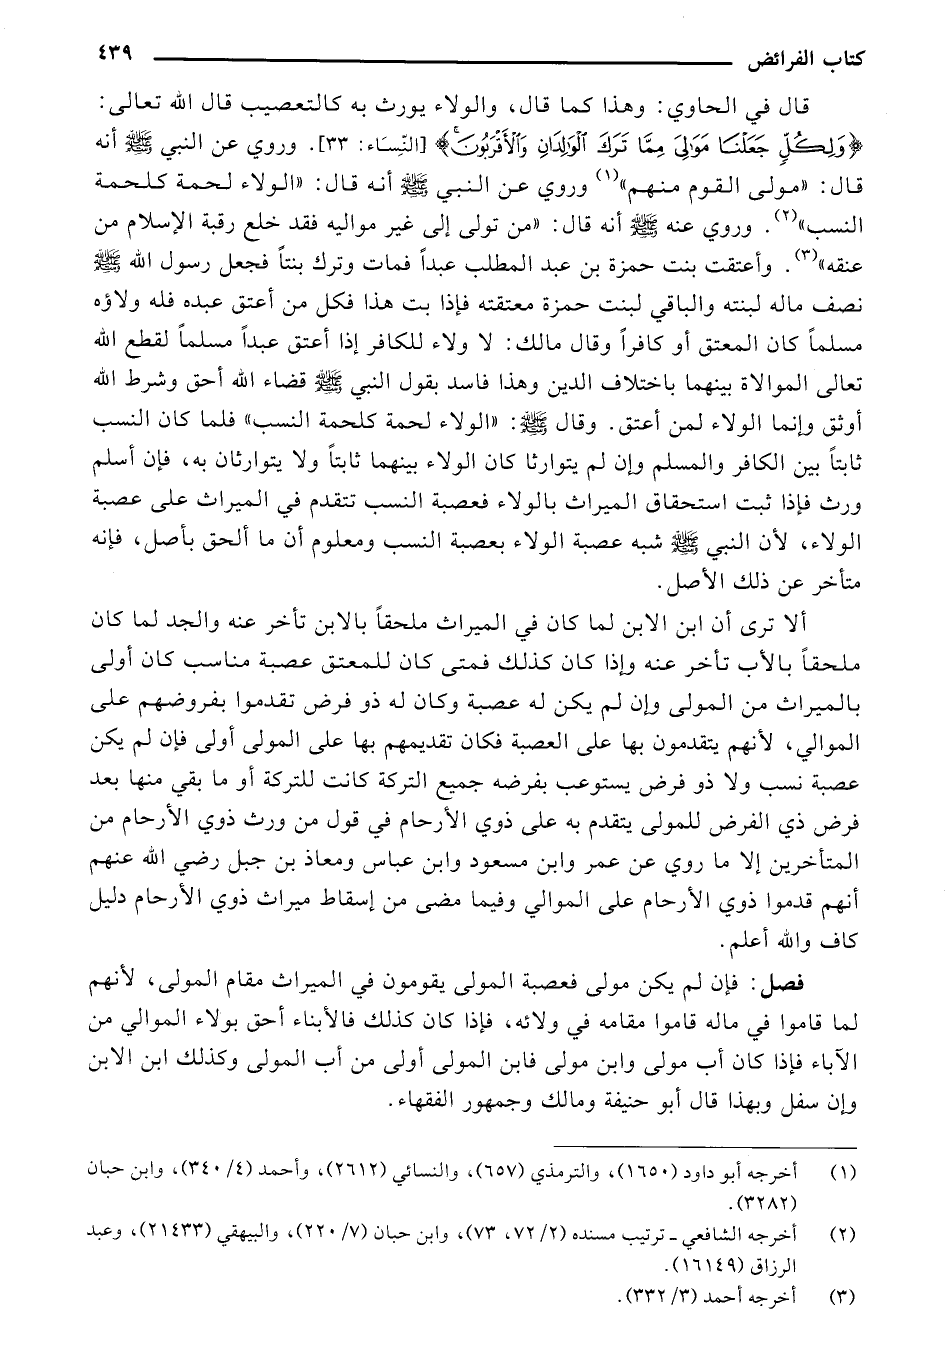 كتاب الفرائض ٤٣٩
قال في الحاوي: وهذا كما قال، والولاء يورث به كالتعصيب قال الله تعالى:
﴿وَلِكُلٍّ جَعَلْنَا مَوَالِيَ مِمَّا تَرَكَ الْوَالِدَانِ وَالْأَقْرَبُونَ﴾ [النِّسَاء: ٣٣]. وروي عن النبي ﷺ أنه
قال: «مولى القوم منهم»(١) وروي عن النبي ﷺ أنه قال: «الولاء لحمة كلحمة
النسب»(٢). وروي عنه ﷺ أنه قال: «من تولى إلى غير مواليه فقد خلع رقبة الإسلام من
عنقه»(٣). وأعتقت بنت حمزة بن عبد المطلب عبداً فمات وترك بنتاً فجعل رسول الله ﷺ
نصف ماله لبنته والباقي لبنت حمزة معتقته فإذا بت هذا فكل من أعتق عبده فله ولاؤه
مسلماً كان المعتق أو كافراً وقال مالك: لا ولاء للكافر إذا أعتق عبداً مسلماً لقطع الله
تعالى الموالاة بينهما باختلاف الدين وهذا فاسد بقول النبي ﷺ قضاء الله أحق وشرط الله
أوثق وإنما الولاء لمن أعتق. وقال ﷺ: «الولاء لحمة كلحمة النسب» فلما كان النسب
ثابتاً بين الكافر والمسلم وإن لم يتوارثا كان الولاء بينهما ثابتاً ولا يتوارثان به، فإن أسلم
ورث فإذا ثبت استحقاق الميراث بالولاء فعصبة النسب تتقدم في الميراث على عصبة
الولاء، لأن النبي ﷺ شبه عصبة الولاء بعصبة النسب ومعلوم أن ما ألحق بأصل، فإنه
متأخر عن ذلك الأصل.
ألا ترى أن ابن الابن لما كان في الميراث ملحقاً بالابن تأخر عنه والجد لما كان
ملحقاً بالأب تأخر عنه وإذا كان كذلك فمتى كان للمعتق عصبة مناسب كان أولى
بالميراث من المولى وإن لم يكن له عصبة وكان له ذو فرض تقدموا بفروضهم على
الموالي، لأنهم يتقدمون بها على العصبة فكان تقديمهم بها على المولى أولى فإن لم يكن
عصبة نسب ولا ذو فرض يستوعب بفرضه جميع التركة كانت للتركة أو ما بقي منها بعد
فرض ذي الفرض للمولى يتقدم به على ذوي الأرحام في قول من ورث ذوي الأرحام من
المتأخرين إلا ما روي عن عمر وابن مسعود وابن عباس ومعاذ بن جبل رضي الله عنهم
أنهم قدموا ذوي الأرحام على الموالي وفيما مضى من إسقاط ميراث ذوي الأرحام دليل
كاف والله أعلم.
فصل: فإن لم يكن مولى فعصبة المولى يقومون في الميراث مقام المولى، لأنهم
لما قاموا في ماله قاموا مقامه في ولائه، فإذا كان كذلك فالأبناء أحق بولاء الموالي من
الآباء فإذا كان أب مولى وابن مولى فابن المولى أولى من أب المولى وكذلك ابن الابن
وإن سفل وبهذا قال أبو حنيفة ومالك وجمهور الفقهاء.
(١) أخرجه أبو داود (١٦٥٠)، والترمذي (٦٥٧)، والنسائي (٢٦١٢)، وأحمد (٤/ ٣٤٠)، وابن حبان
(٣٢٨٢).
(٢) أخرجه الشافعي ـ ترتيب مسنده (٢/ ٧٢، ٧٣)، وابن حبان (٧/ ٢٢٠)، والبيهقي (٢١٤٣٣)، وعبد
الرزاق (١٦١٤٩).
(٣) أخرجه أحمد (٣/ ٣٣٢).